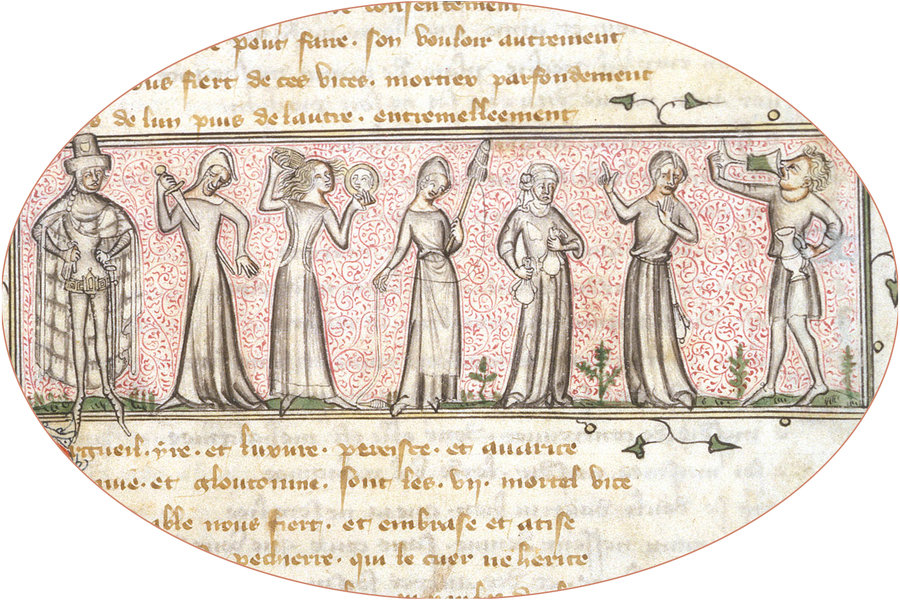 consentement
e peut faire . son vouloir autrement
ous fiert de ces vices . mortiex parfondement
s de lun puis de lautre . entremelleement
rgueil . yre . et luxure . peresce . et avarice
nuie . et gloutonnie . sont les . vij . mortel vice
able nous fiert . et embrase et atise
pecherre . qui le cuer ne herite